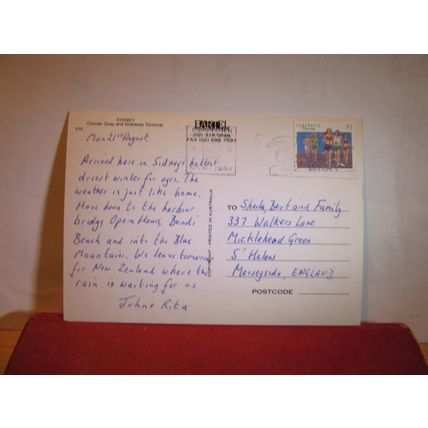 SYDNEY
Circular Quay and Overseas Terminal
Mon 21st August
Arrived here in Sidney's hottest
driest winter for ages. The
weather is just like home.
Have been to the harbour
bridge Opera House, Bondi
Beach and into the Blue
Mountains. We leave tomorrow
for New Zealand where the
rain is waiting for us.
John & Rita
COPYRIGHT - PRINTED IN AUSTRALIA
(02) 318 0948
FAX (02) 698 7597
AUSTRALIA
$1
TO Sheila, Bert and Family
337 Walkers Lane
Micklehead Green
St Helens
Merseyside, ENGLAND
POSTCODE